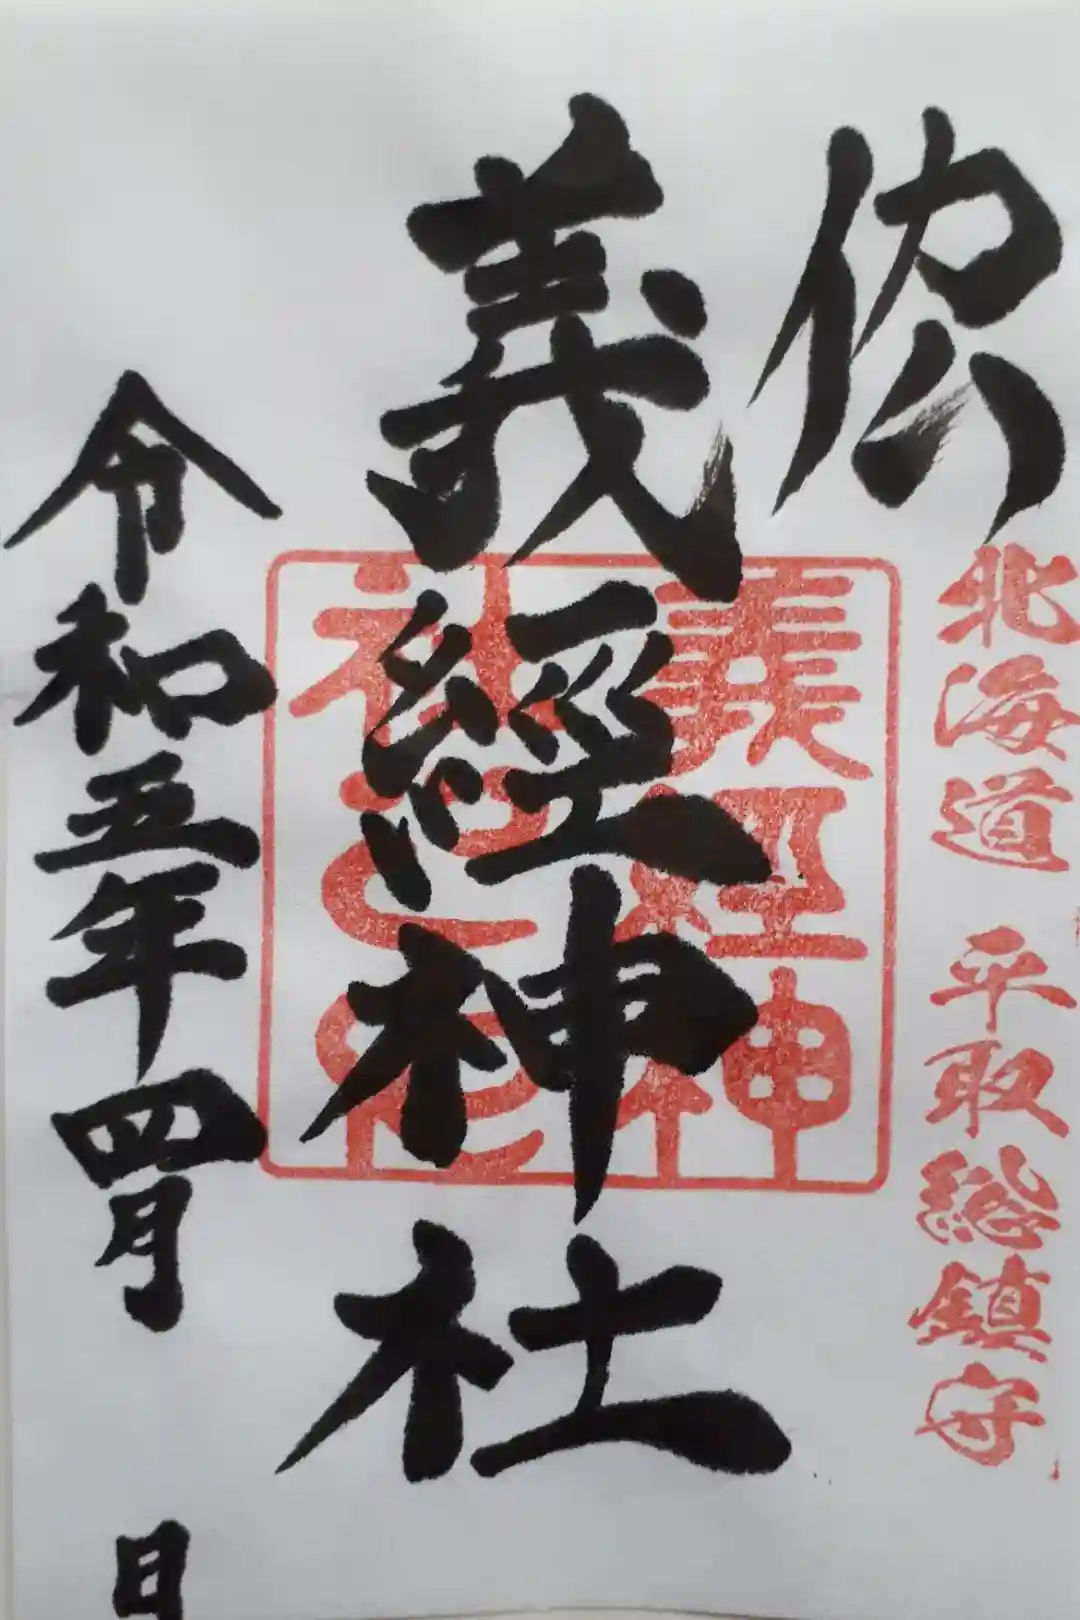 北海道 平取総鎮守
義經神社
義経神
社之印
令和五年四月 日